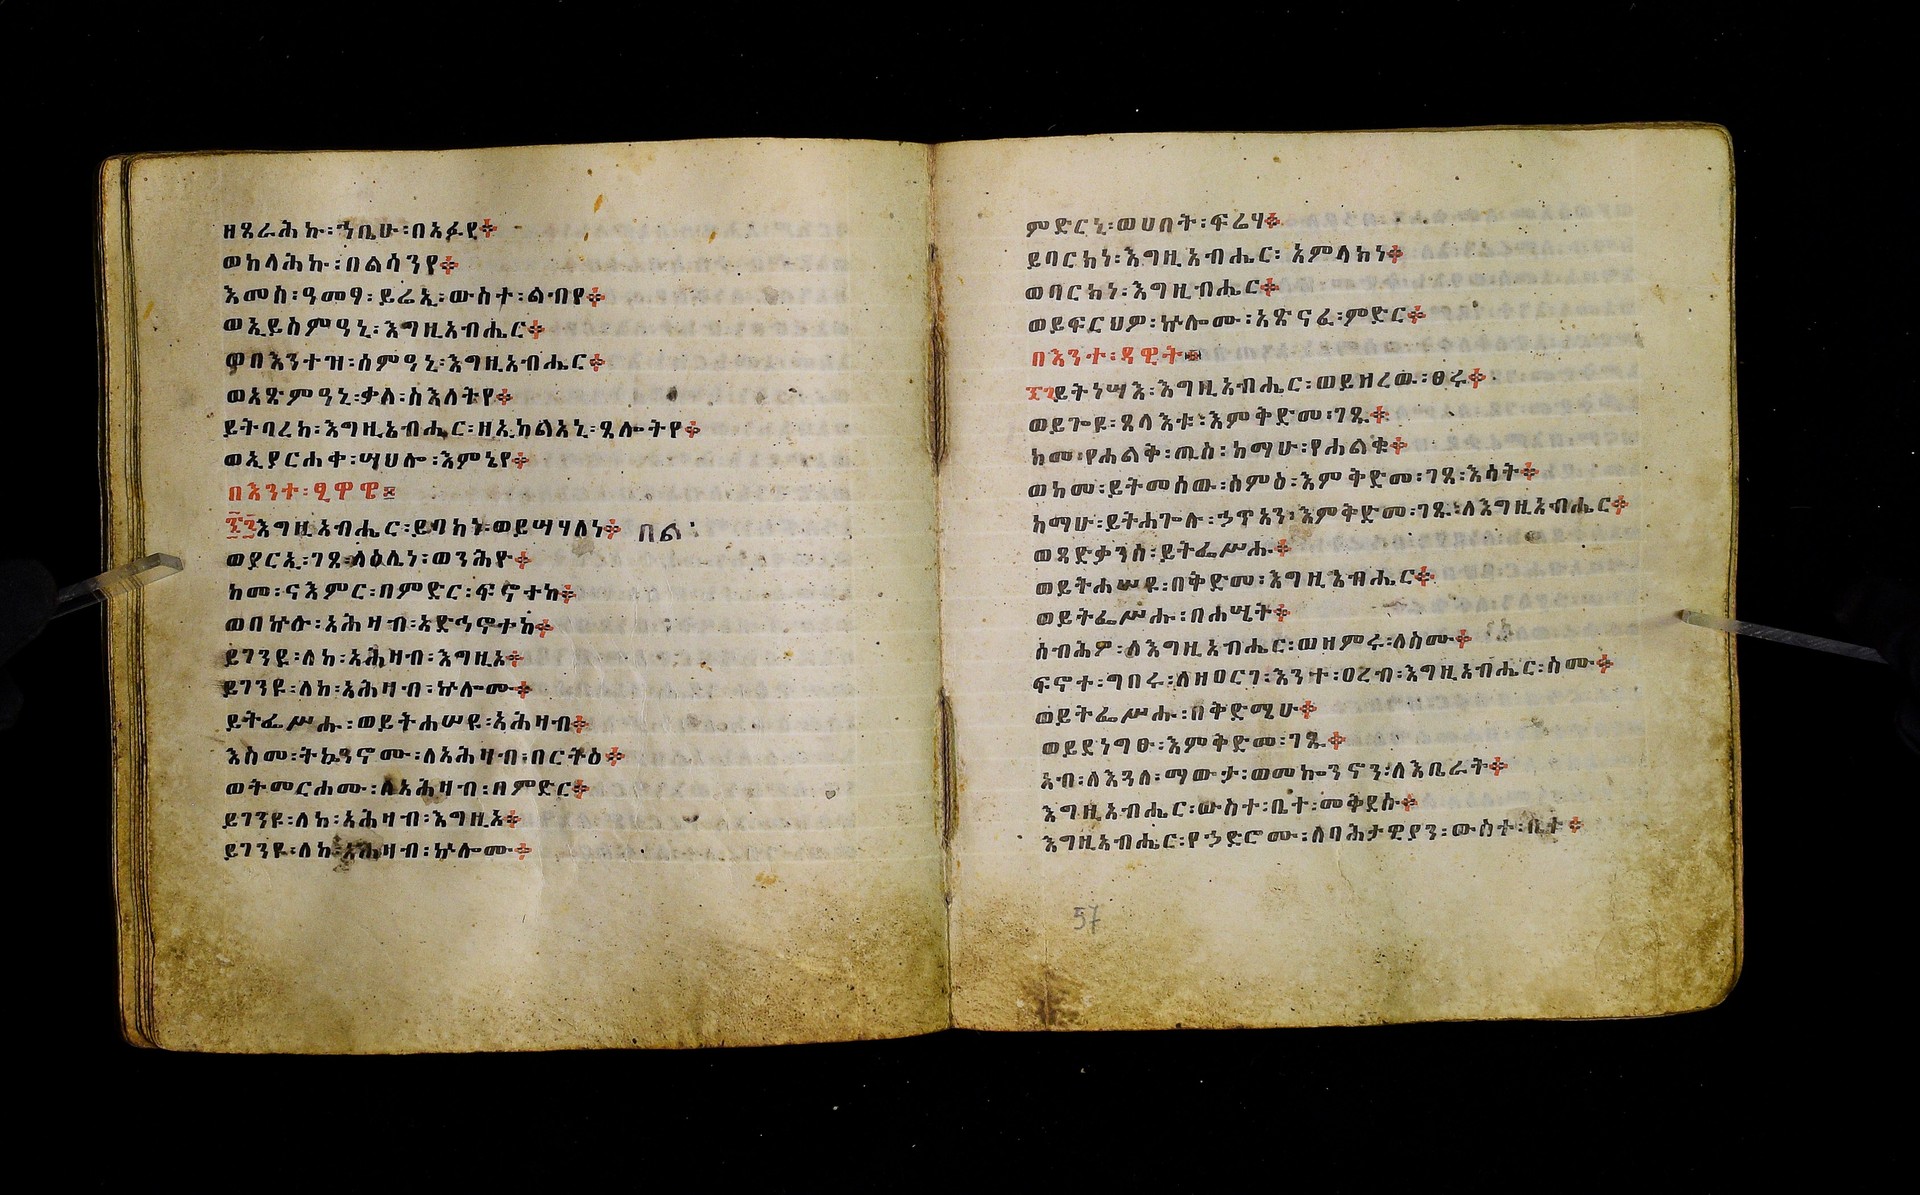 ዘጸራሕኩ፡ኀቤሁ፡በአፉየ፨
ወከላሕኩ፡በልሳንየ፨
እመሰ፡ዓመፃ፡ይሬኢ፡ውስተ፡ልብየ፨
ወኢይስምዓኒ፡እግዚአብሔር፨
ወበእንተዝ፡ሰምዓኒ፡እግዚአብሔር፨
ወአጽምዓኒ፡ቃለ፡ስእለትየ፨
ይትባረክ፡እግዚኤብሔር፡ዘኢከልአኒ፡ጸሎትየ፨
ወኢያርሐቀ፡ሣህሎ፡እምኔየ፨
በእንተ፡
እግዚአብሔር፡ይባከነ፡ወይሣሃለነ፨ በል፡
ወያርኢ፡ገጸ፡ላዕሌነ፡ወንሕዮ፨
ከመ፡ናእምር፡በምድር፡ፍኖተከ፨
ወበኵሉ፡አሕዛብ፡አድኅኖተከ፨
ይገንዩ፡ለከ፡አሕዛብ፡እግዚአ፨
ይገንዩ፡ለከ፡አሕዛብ፡ኵሎሙ፨
ይትፌሥሑ፡ወይትሐሠዩ፡አሕዛብ፨
እስመ፡ትኴንኖሙ፡ለአሕዛብ፡በርትዕ፨
ወትመርሐሙ፡ለአሕዛብ፡በምድር፨
ይገንዩ፡ለከ፡አሕዛብ፡እግዚአ፨
ይገንዩ፡ለከ፡አሕዛብ፡ኵሎሙ፨
ምድርኒ፡ወሀበት፡ፍሬሃ፨
ይባርከነ፡እግዚአብሔር፡አምላክነ፨
ወባርከነ፡እግዚብሔር፨
ወይፍርህዎ፡ኵሎሙ፡አጽናፈ፡ምድር፨
በእንተ፡ዳዊት
ይትነሣእ፡እግዚአብሔር፡ወይዘረዉ፡ፀሩ፨
ወይጐዩ፡ጸላእቱ፡እምቅድመ፡ገጹ፨
ከመ፡የሐልቅ፡ጢስ፡ከማሁ፡የሐልቁ፨
ወከመ፡ይትመሰው፡ሰምዕ፡እምቅድመ፡ገጸ፡እሳት፨
ከማሁ፡ይትሐጐሉ፡ኃጥአን፡እምቅድመ፡ገጹ፡ለእግዚአብሔር፨
ወጻድቃንሰ፡ይትፌሥሑ፨
ወይትሐሠዩ፡በቅድመ፡እግዚኤብሔር፨
ወይትፌሥሑ፡በሐሤት፨
ሰብሕዎ፡ለእግዚአብሔር፡ወዘምሩ፡ለስሙ፨
ፍኖተ፡ግበሩ፡ለዘዐርገ፡እንተ፡ዐረብ፡እግዚአብሔር፡ስሙ፨
ወይትፌሥሑ፡በቅድሜሁ፨
ወይደነግፁ፡እምቅድመ፡ገጹ፨
አብ፡ለእጓለ፡ማውታ፡ወመኰንኖን፡ለእቤራት፨
እግዚአብሔር፡ውስተ፡ቤተ፡መቅደሱ፨
እግዚአብሔር፡የኃድሮሙ፡ለባሕታዊያን፡ውስተ፡ቤተ፨
57